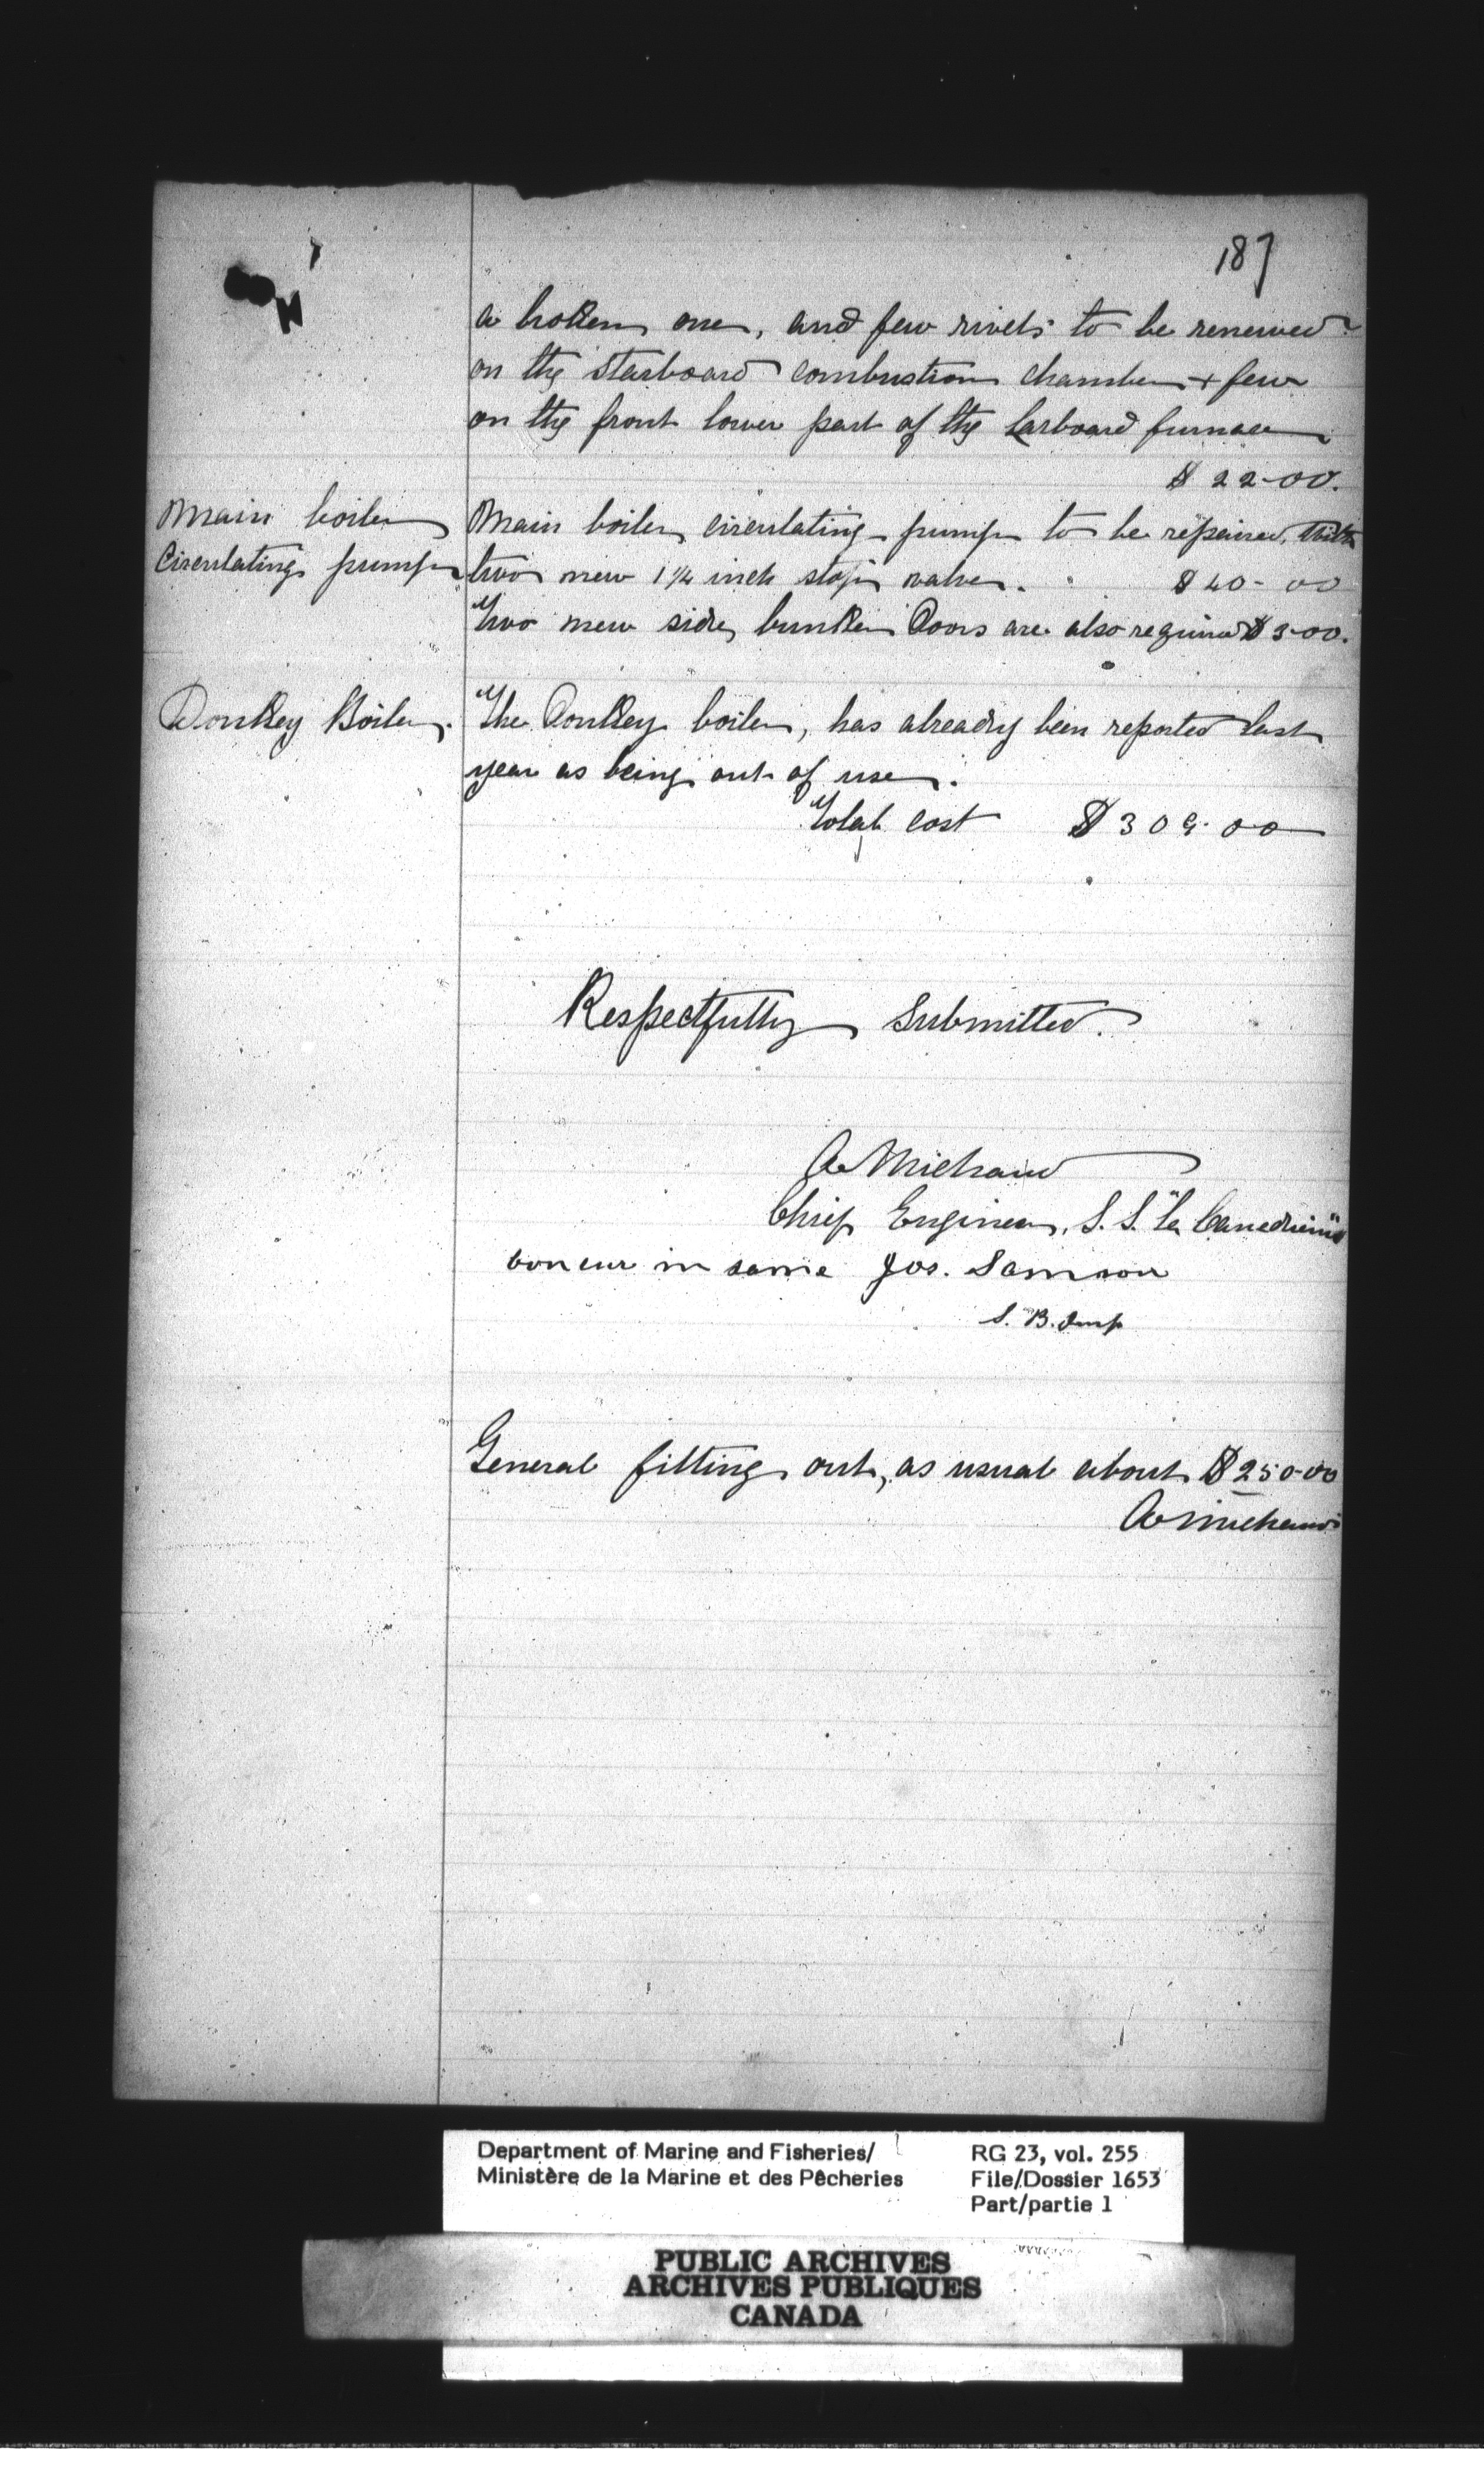 187
a broken one, and few rivets to be renewed
on the Starboard combustion chamber + few
on the front lower part of the Larboard furnace
$ 22-00.
Main boiler
Circulating pump
Main boiler circulating pump to be repaired, with
two new 1 1/4 inch stop valve. $ 40-00
Two new side bunker Doors are also required $ 3-00.
Donkey Boiler.
The Donkey boiler, has already been reported last
year as being out of use.
Total cost $ 309-00
Respectfully Submitted.
A Michaud
Chief Engineer, S.S. "La Canadienne"
Concur in same Jos. Samson
S. B. Insp
General fitting out, as usual about $ 250-00
A Michaud
Department of Marine and Fisheries/
Ministère de la Marine et des Pêcheries
RG 23, vol. 255
File/Dossier 1653
Part/partie 1
PUBLIC ARCHIVES
ARCHIVES PUBLIQUES
CANADA